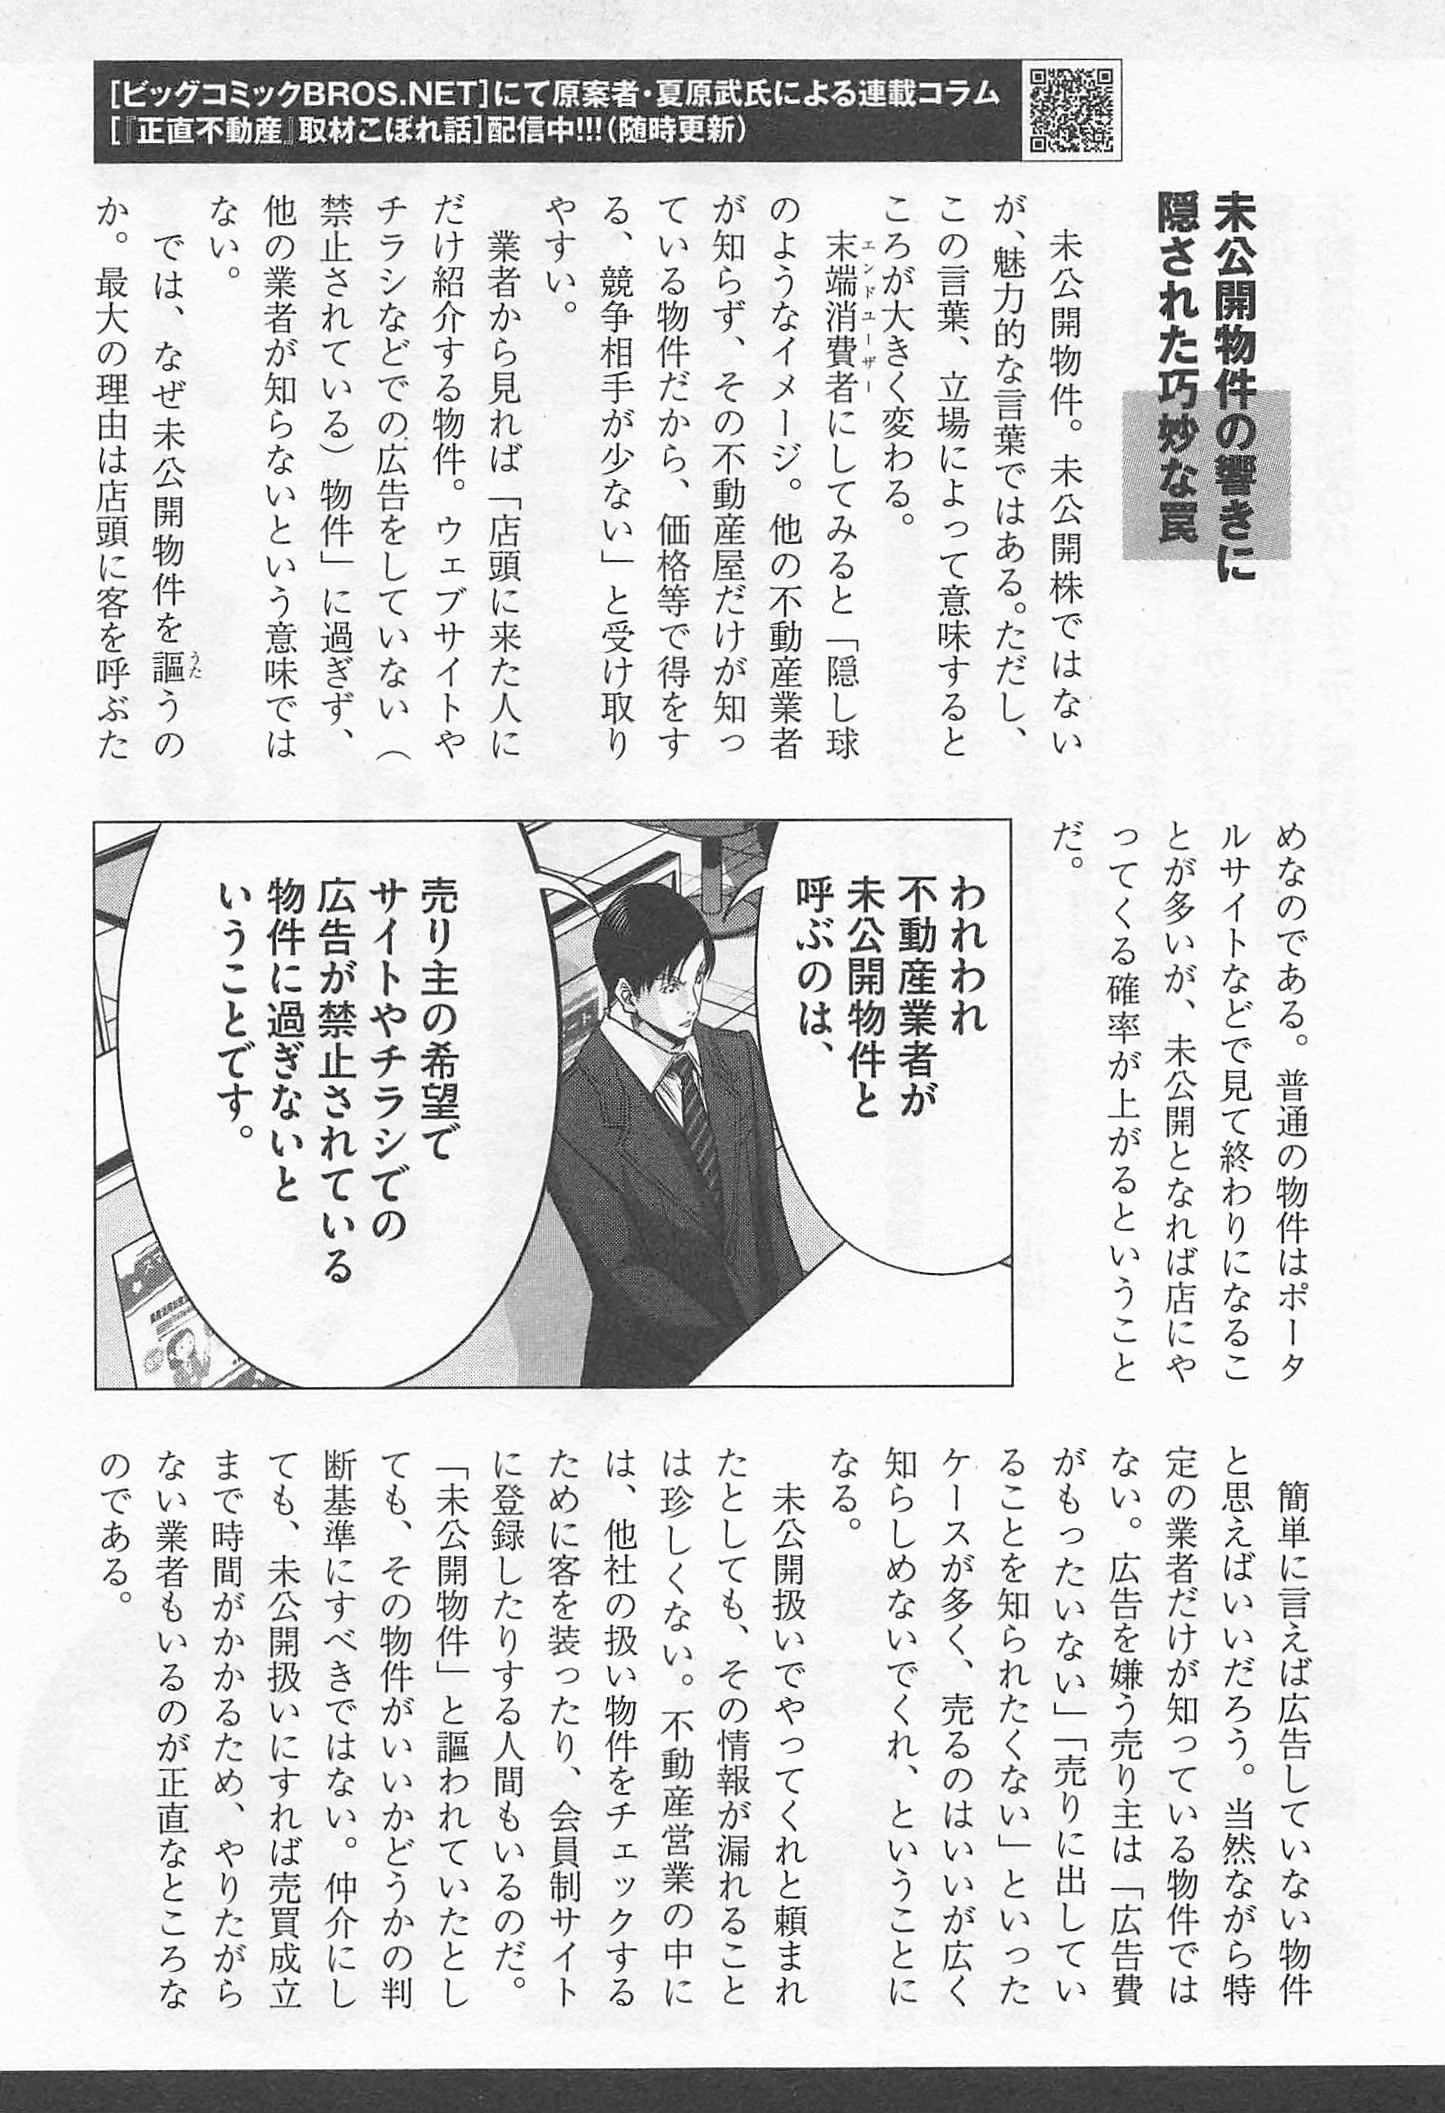 [ビッグコミックBROS.NET]にて原案者・夏原武氏による連載コラム
[『正直不動産』取材こぼれ話]配信中!!!(随時更新)
未公開物件の響きに
隠された巧妙な罠
未公開物件。未公開株ではない
が、魅力的な言葉ではある。ただし、
この言葉、立場によって意味すると
ころが大きく変わる。
エンドユーザー
末端消費者にしてみると「隠し球
のようなイメージ。他の不動産業者
が知らず、その不動産屋だけが知っ
ている物件だから、価格等で得をす
る、競争相手が少ない」と受け取り
やすい。
業者から見れば「店頭に来た人に
だけ紹介する物件。ウェブサイトや
チラシなどでの広告をしていない(
禁止されている)物件」に過ぎず、
他の業者が知らないという意味では
ない。
うた
では、なぜ未公開物件を謳うの
か。最大の理由は店頭に客を呼ぶた
めなのである。普通の物件はポータ
ルサイトなどで見て終わりになるこ
とが多いが、未公開となれば店にや
ってくる確率が上がるということ
だ。
われわれ
不動産業者が
未公開物件と
呼ぶのは、
売り主の希望で
サイトやチラシでの
広告が禁止されている
物件に過ぎないと
いうことです。
簡単に言えば広告していない物件
と思えばいいだろう。当然ながら特
定の業者だけが知っている物件では
ない。広告を嫌う売り主は「広告費
がもったいない」「売りに出してい
ることを知られたくない」といった
ケースが多く、売るのはいいが広く
知らしめないでくれ、ということに
なる。
未公開扱いでやってくれと頼まれ
たとしても、その情報が漏れること
は珍しくない。不動産営業の中に
は、他社の扱い物件をチェックする
ために客を装ったり、会員制サイト
に登録したりする人間もいるのだ。
「未公開物件」と謳われていたとし
ても、その物件がいいかどうかの判
断基準にすべきではない。仲介にし
ても、未公開扱いにすれば売買成立
まで時間がかかるため、やりたがら
ない業者もいるのが正直なところな
のである。